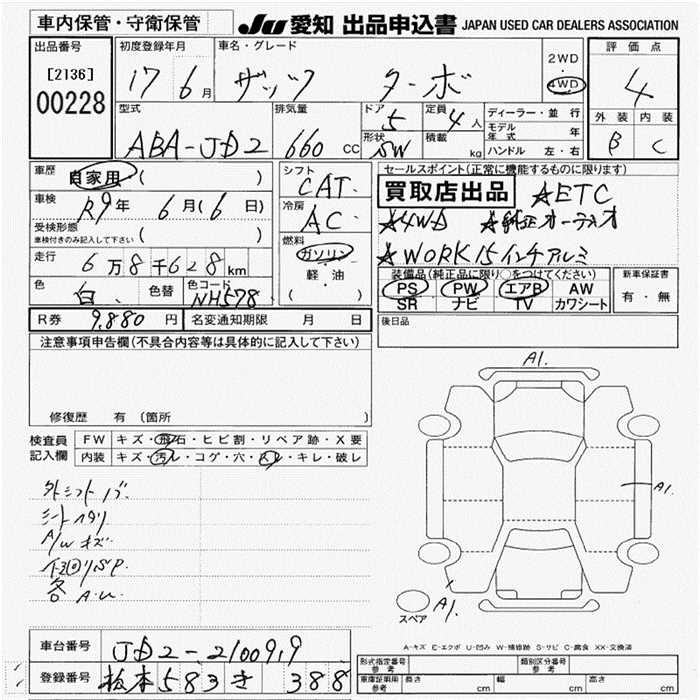 車内保管・守衛保管
JU 愛知 出品申込書 JAPAN USED CAR DEALERS ASSOCIATION
出品番号
[2136]
00228
初度登録年月
17 6月
車名・グレード
ザッツ ターボ
2WD
・
4WD
評価点
4
外装 内装
B C
型式
ABA-JD2
排気量
660 cc
ドア 5
形状 SW
定員 4人
積載 kg
ディーラー・並行
モデル年式 年
ハンドル 左・右
車歴
自家用 ( )
車検
R9年 6月(6日)
受検形態
車検付きのみ記入して下さい ( )
走行
6万8千628km
色
白
色替
色コード
NH578
シフト
CAT
冷房
AC
燃料
ガソリン
・
軽・油
( )
セールスポイント(正常に機能するものに限ります)
買取店出品 ☆ETC
☆4WD ☆純正オーディオ
☆WORK15インチアルミ
装備品(純正品に限り○をつけてください)
PS PW エアB AW
SR ナビ TV カワシート
新車保証書
有・無
R券 9,880円
名変通知期限 月 日
後日品
注意事項申告欄(不具合内容等は具体的に記入して下さい)
修復歴 有 (箇所 )
検査員記入欄
FW キズ・飛石・ヒビ割・リペア跡・X要
内装 キズ・汚レ・コゲ・穴・スレ・キレ・破レ
シートヘタリ
A/Wキズ
各A.U
A1.
A1.
A1.
スペア
A-キズ E-エクボ U-凹み W-補修跡 S-サビ C-腐食 XX-交換済
車台番号
JD2-2100919
登録番号
583き 388
形式指定番号 参考
類別区分番号 参考
車庫証明用 参考
長さ cm
幅 cm
高さ cm